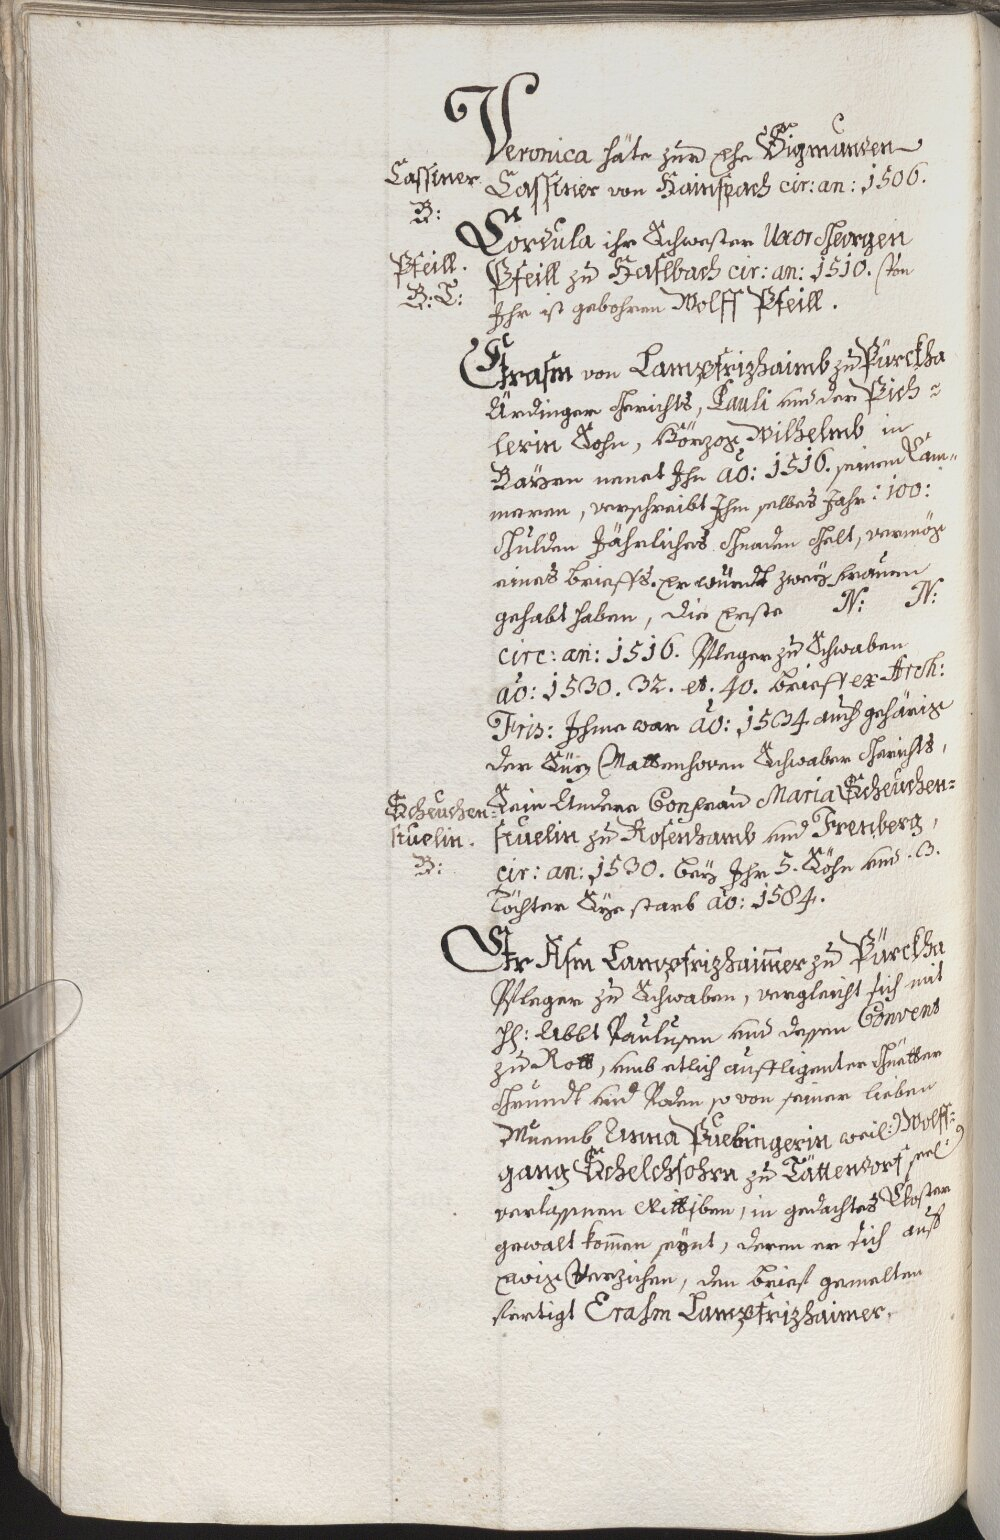 Veronica häte zur Ehe Sigmunden
Cassiner
Cassiner von Hainspach cir: an: 1506.
B:
Cordula ihr Schwester Uxor Georgen
Pfeill.
Pfeill zu Haslbach cir: an: 1510. Von
B: T:
Ihr ist gebohren Wolff Pfeill.
Erasm von Lampfrizhaimb zu Pürckha
Ärdinger Gerichts, Pauli und der Pich-
lerin Sohn, Hörzog Wilhelmb in
Bayrn nenet Ihn aõ: 1516. seinem Cam-
merern, verschreibt Ihm selbes Jahr: 100:
Gulden Jährliches Gnaden Gelt, vermög
eines brieffs. Er würdt zwey frauen
gehabt haben, die Erste N: N:
circ: an: 1516. Pfleger zu Schwaben
aõ: 1530. 32. et. 40. brieff ex Arch:
Fris: Ihme war aõ: 1534 auch gehörig
der Siz Mattenhoven Schwaber Gerichts,
Scheuchen-
Sein Andere Consrau Maria Scheuchen-
stuelin.
stuelin zu Rosenhamb und Frenberg,
B:
cir: an: 1530. bey Ihr 5. Söhn und .3.
Töchter Sye starb aõ: 1584.
Er Asm Lampfrizhaim̃er zu Pürckha
Pfleger zu Schwaben, vergleicht sich mit
H: Abbt Paulusen und dessen Convent
zu Rott, umb etlich aufligenter Guetter
Grundt und Poden so von seiner lieben
Muemb Anna Puebingerin weil: Wolff-
gang Schelchsohrn zu Tättendorf seel
verlassnen Wittiben, in gedachtes Closter
gewalt kom̃en seynt, deren er sich auf
ewig Verzichen, den brief gemelten
fertigt Erasm Lampfrizhaimer.